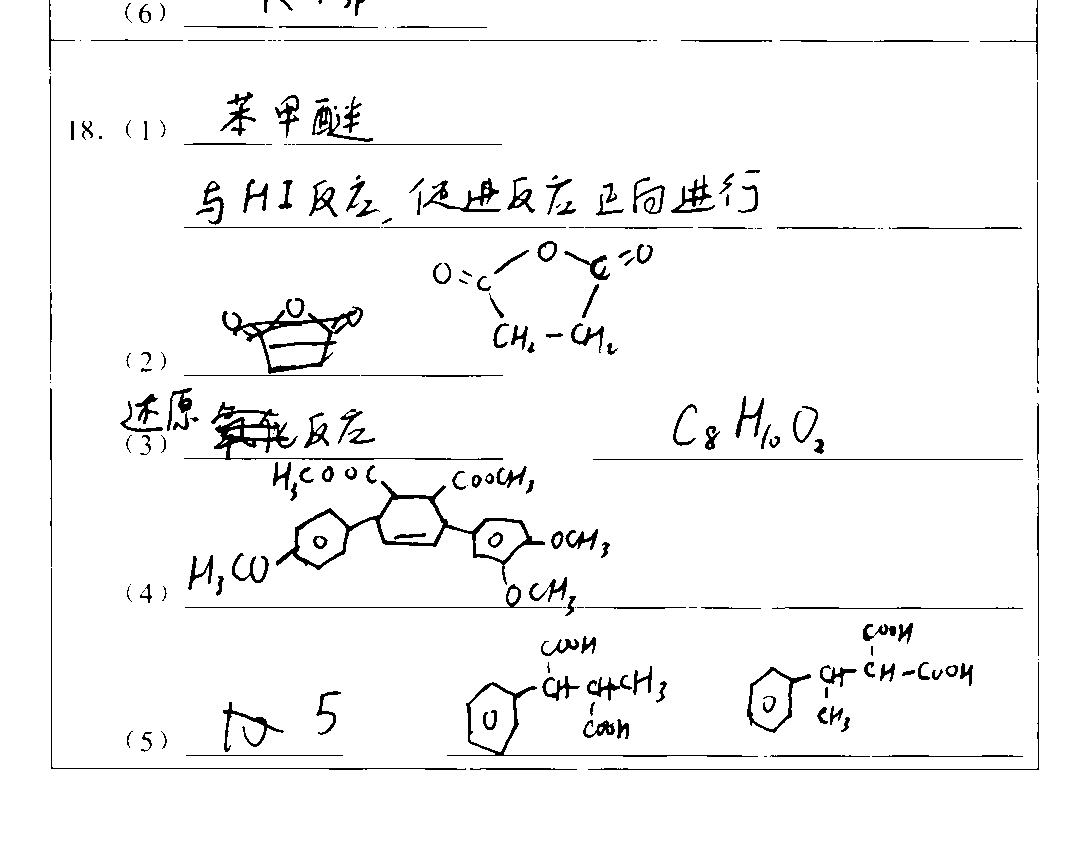 (6)
18. (1) 苯甲醚
与HI反应,促进反应正向进行
(2) O=C O C=O CH₂-CH₂
(3) 还原反应 C₈H₁₀O₂
(4) H₃CO H₃COOC COOCH₃ OCH₃ OCH₃
(5) 5 COOH CH-CHCH₃ COOH COOH CH-CH-COOH CH₃